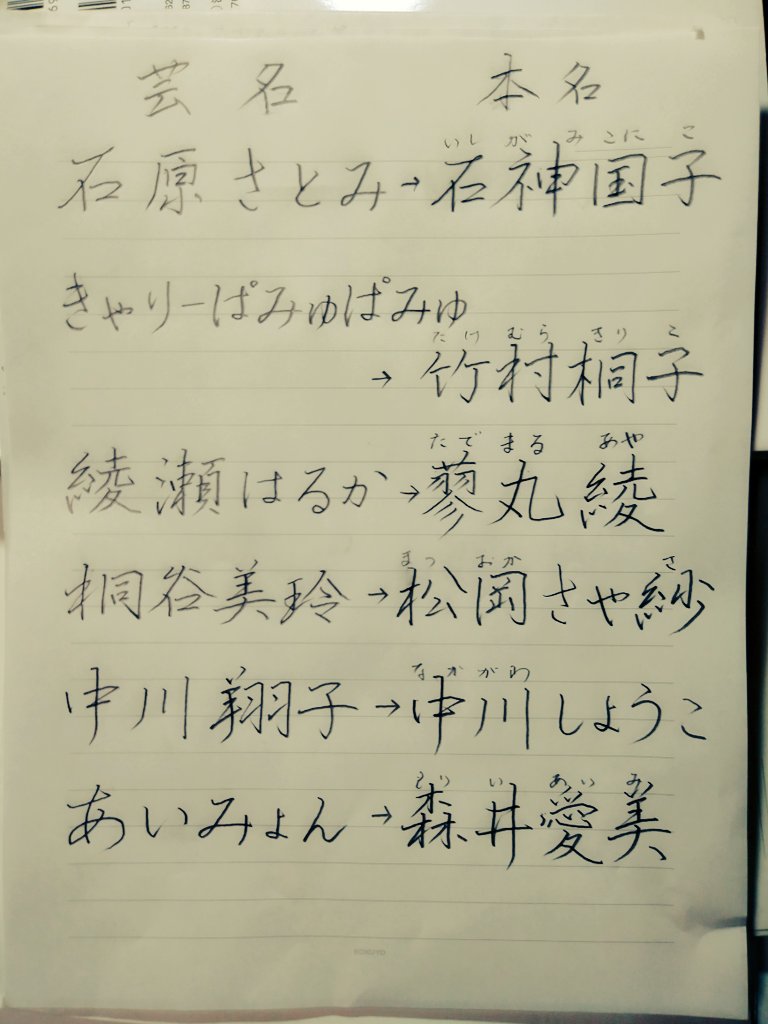 芸名 本名
いしがみ こにこ
石原さとみ→石神国子
きゃりーぱみゅぱみゅ
たけむら きりこ
→竹村桐子
たでまる あや
綾瀬はるか→蓼丸綾
まつおか さ
桐谷美玲→松岡さや紗
なかがわ
中川翔子→中川しょうこ
もりい あいみ
あいみょん→森井愛美
KOKUYO